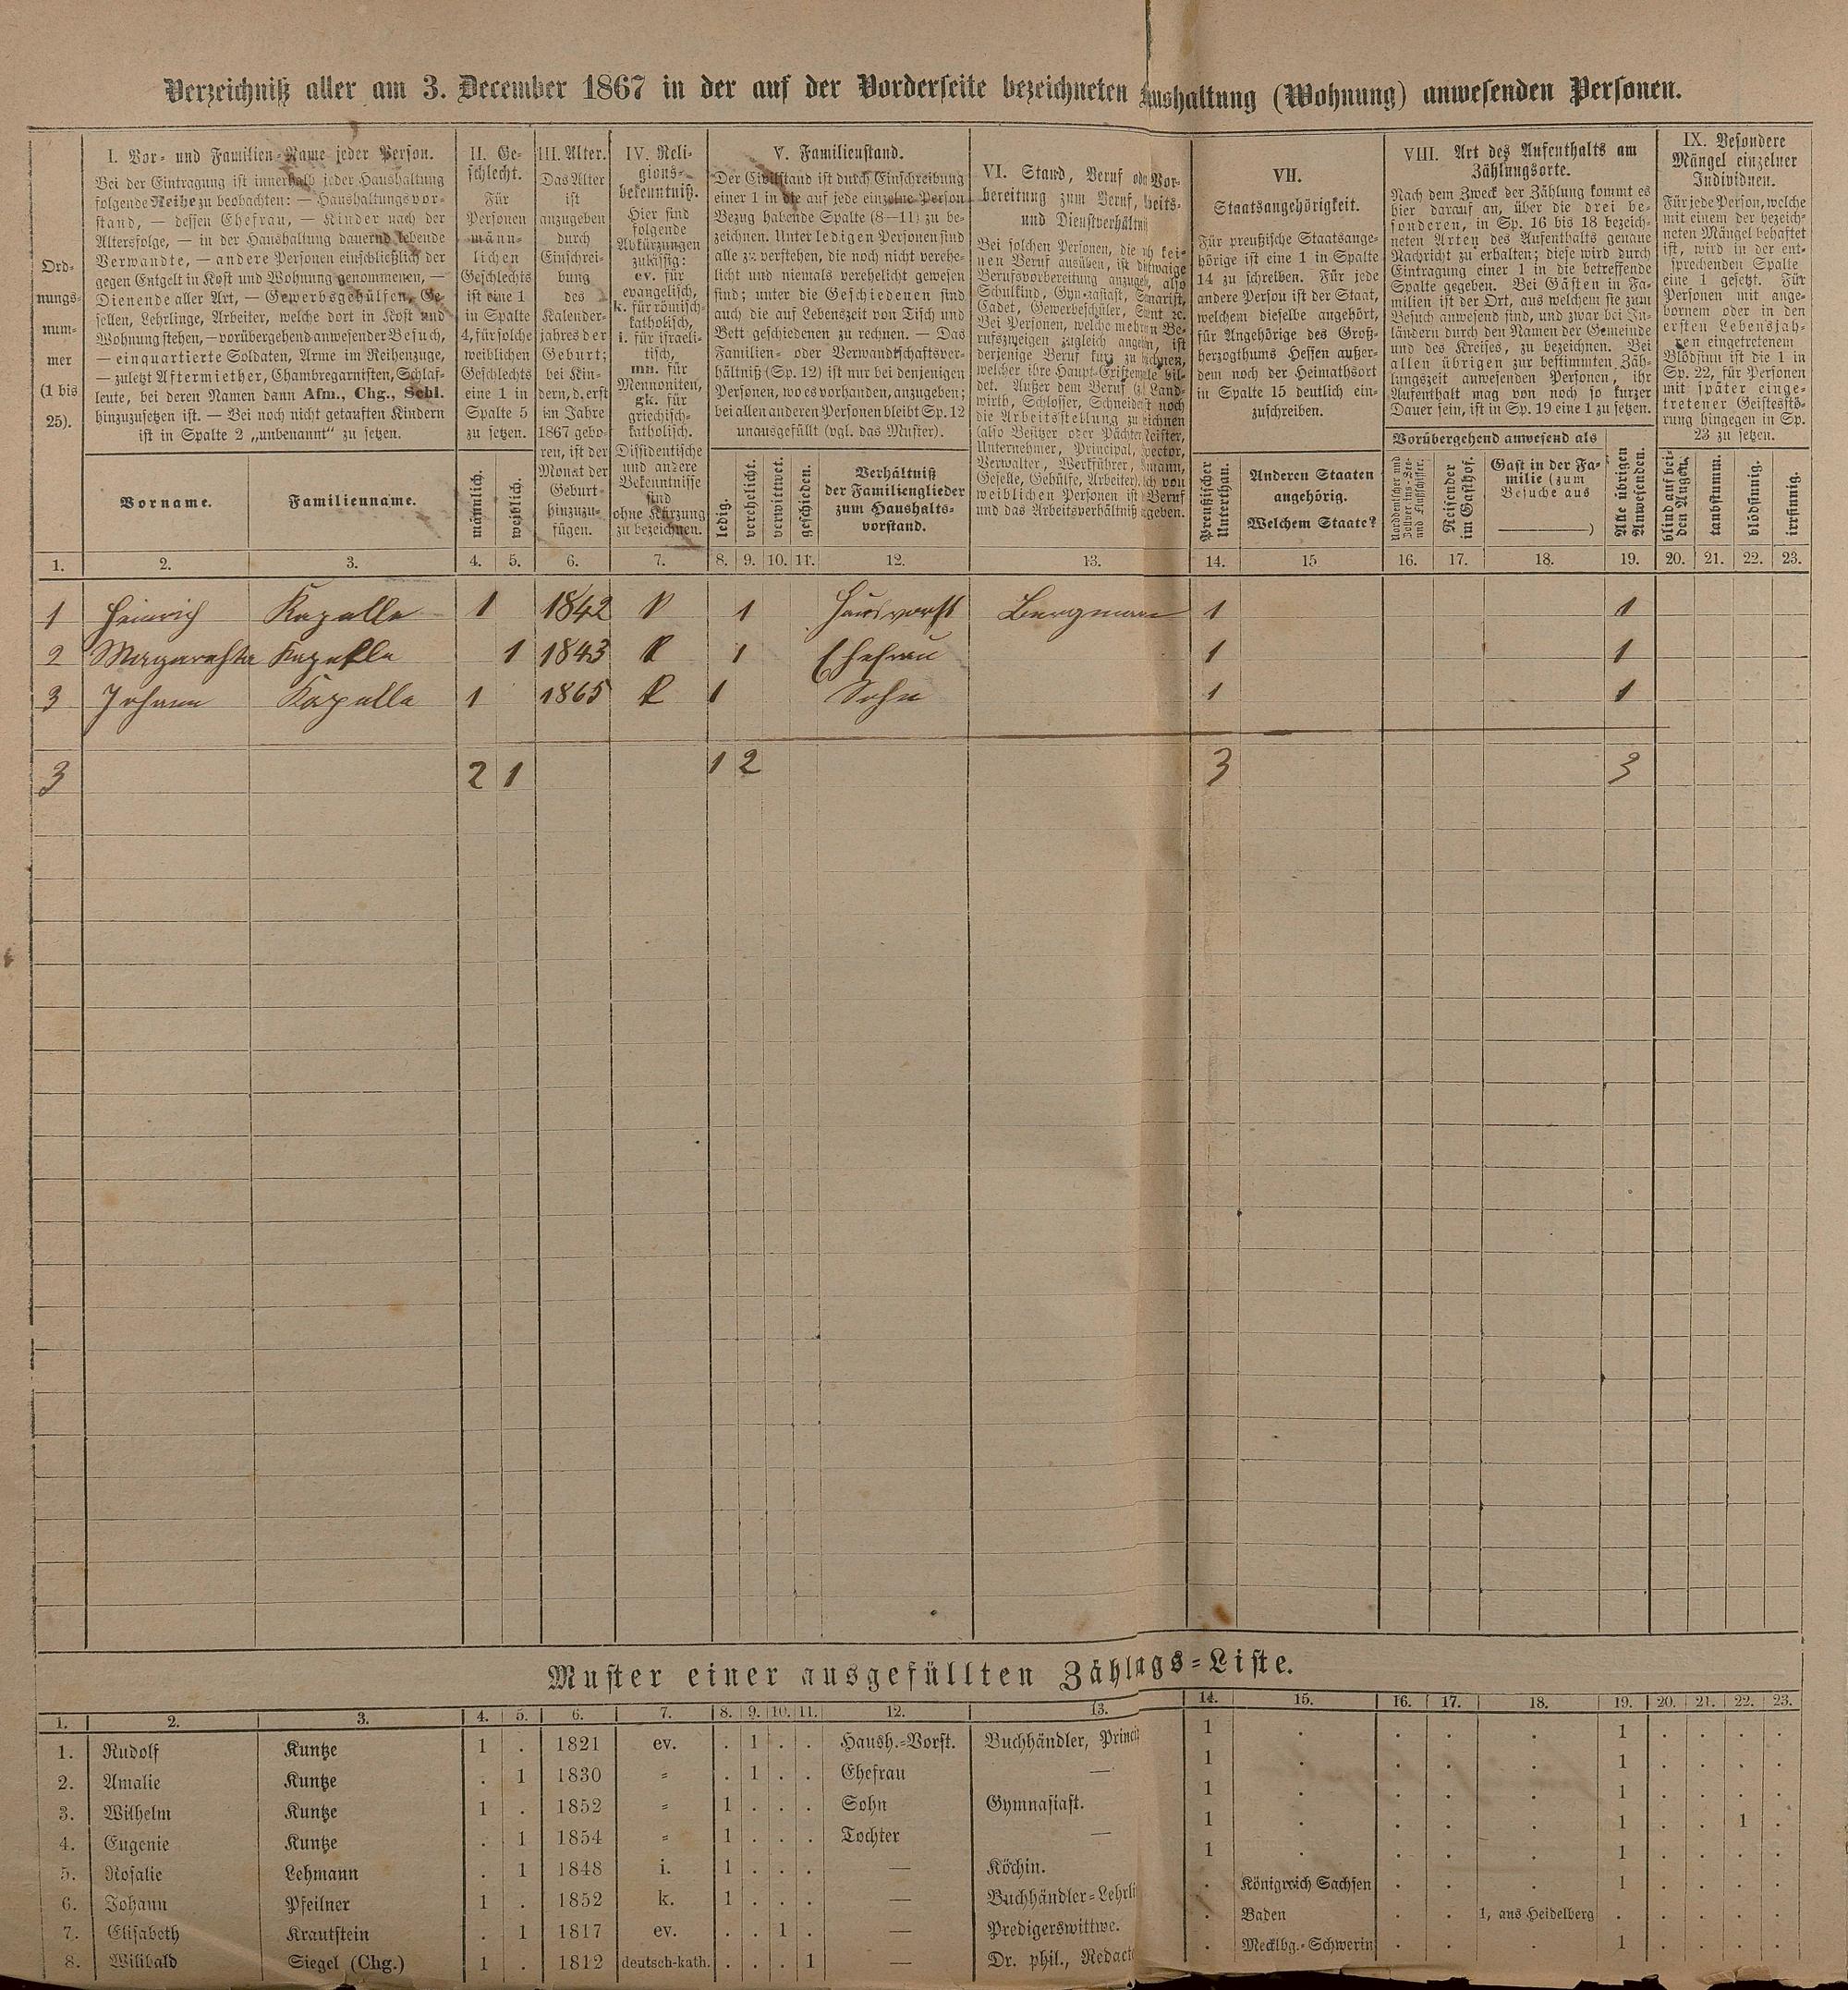 Verzeichniß aller am 3. December 1867 in der auf der Vorderseite bezeichneten haushaltung (Wohnung) anwesenden Personen.
Ord-
nungs-
num-
mer
(1 bis
25).
I. Vor- und Familien-Name jeder Person.
Bei der Eintragung ist innerhalb jeder Haushaltung
folgende Reihe zu beobachten: — Haushaltungsvor-
stand, — dessen Ehefrau, — Kinder nach der
Altersfolge, — in der Haushaltung dauernd lebende
Verwandte, — andere Personen einschließlich der
gegen Entgelt in Kost und Wohnung genommenen, —
Dienende aller Art, — Gewerbsgehülfen, Ge-
sellen, Lehrlinge, Arbeiter, welche dort in Kost und
Wohnung stehen, — vorübergehend anwesender Besuch,
— einquartierte Soldaten, Arme im Reihenzuge,
— zuletzt Aftermiether, Chambregarnisten, Schlaf-
leute, bei deren Namen dann Afm., Chg., Schl.
hinzuzusetzen ist. — Bei noch nicht getauften Kindern
ist in Spalte 2 „unbenannt“ zu setzen.
Vorname.
Familienname.
II. Ge-
schlecht.
Für
Personen
männ-
lichen
Geschlechts
ist eine 1
in Spalte
4, für solche
weiblichen
Geschlechts
eine 1 in
Spalte 5
zu setzen.
männlich.
weiblich.
III. Alter.
Das Alter
ist
anzugeben
durch
Einschrei-
bung
des
Kalender-
jahres der
Geburt;
bei Kin-
dern, d. erst
im Jahre
1867 gebo-
ren, ist der
Monat der
Geburt
hinzuzu-
fügen.
IV. Reli-
gions-
bekenntniß.
Hier sind
folgende
Abkürzungen
zulässig:
ev. für
evangelisch,
k. für römisch-
katholisch,
i. für israeli-
tisch,
mn. für
Mennoniten,
gk. für
griechisch-
katholisch.
Dissidentische
und andere
Bekenntnisse
sind
ohne Kürzung
zu bezeichnen.
V. Familienstand.
Der Civilstand ist durch Einschreibung
einer 1 in die auf jede einzelne Person
Bezug habende Spalte (8—11) zu be-
zeichnen. Unter ledigen Personen sind
alle zu verstehen, die noch nicht verehe-
licht und niemals verehelicht gewesen
sind; unter die Geschiedenen sind
auch die auf Lebenszeit von Tisch und
Bett geschiedenen zu rechnen. — Das
Familien- oder Verwandtschaftsver-
hältniß (Sp. 12) ist nur bei denjenigen
Personen, wo es vorhanden, anzugeben;
bei allen anderen Personen bleibt Sp. 12
unausgefüllt (vgl. das Muster).
ledig.
verehelicht.
verwittwet.
geschieden.
Verhältniß
der Familienglieder
zum Haushalts-
vorstand.
VI. Stand, Beruf oder Vor-
bereitung zum Beruf,
und Dienstverhältniß
Bei solchen Personen, die
nen Beruf ausüben, ist
Berufsvorbereitung
Schulkind, Gymnasiast,
Cadet, Gewerbeschüler,
Bei Personen, welche
rufszweigen zugleich
derjenige Beruf kurz zu
welcher ihre Haupt-Existenz
det. Außer dem Beruf
wirth, Schlosser,
die Arbeitsstellung zu
(also Besitzer oder Pächter
Unternehmer, Principal,
Verwalter, Werkführer,
Geselle, Gehülfe, Arbeiter).
weiblichen Personen ist Beruf
und das Arbeitsverhältniß
VII.
Staatsangehörigkeit.
Für preußische Staatsange-
hörige ist eine 1 in Spalte
14 zu schreiben. Für jede
andere Person ist der Staat,
welchem dieselbe angehört,
für Angehörige des Groß-
herzogthums Hessen außer-
dem noch der Heimathsort
in Spalte 15 deutlich ein-
zuschreiben.
Preußischer
Unterthan.
Anderen Staaten
angehörig.
Welchem Staate?
VIII. Art des Aufenthalts am
Zählungsorte.
Nach dem Zweck der Zählung kommt es
hier darauf an, über die drei be-
sonderen, in Sp. 16 bis 18 bezeich-
neten Arten des Aufenthalts genaue
Nachricht zu erhalten; diese wird durch
Eintragung einer 1 in die betreffende
Spalte gegeben. Bei Gästen in Fa-
milien ist der Ort, aus welchem sie zum
Besuch anwesend sind, und zwar bei In-
ländern durch den Namen der Gemeinde
und des Kreises, zu bezeichnen. Bei
allen übrigen zur bestimmten Zäh-
lungszeit anwesenden Personen, ihr
Aufenthalt mag von noch so kurzer
Dauer sein, ist in Sp. 19 eine 1 zu setzen.
Vorübergehend anwesend als
Norddeutscher und
Zollvereins-See-
und Flußschiffer.
Reisender
im Gasthof.
Gast in der Fa-
milie (zum
Besuche aus
)
Alle übrigen
Anwesenden.
IX. Besondere
Mängel einzelner
Individuen.
Für jede Person, welche
mit einem der bezeich-
neten Mängel behaftet
ist, wird in der ent-
sprechenden Spalte
eine 1 gesetzt. Für
Personen mit ange-
bornem oder in den
ersten Lebensjah-
ren eingetretenem
Blödsinn ist die 1 in
Sp. 22, für Personen
mit später einge-
tretener Geistesstö-
rung hingegen in Sp.
23 zu setzen.
blind auf bei-
den Augen.
taubstumm.
blödsinnig.
irrsinnig.
1. 2. 3. 4. 5. 6. 7. 8. 9. 10. 11. 12. 13. 14. 15 16. 17. 18. 19. 20. 21. 22. 23.
1 Heinrich Kapelle 1 1842 1 Hausvorst Bergmann 1 1
2 Kapelle 1 1843 k 1 Ehefrau 1 1
3 Johann Kapelle 1 1865 k 1 Sohn 1 1
3 2 1 1 2 3 3
Muster einer ausgefüllten Zählungs-Liste.
1. 2. 3. 4. 5. 6. 7. 8. 9. 10. 11. 12. 13. 14. 15. 16. 17. 18. 19. 20. 21. 22. 23.
1. Rudolf Kuntze 1 . 1821 ev. . 1 . . Haush.-Vorst. Buchhändler, 1 . . . . 1 . . . .
2. Amalie Kuntze . 1 1830 = . 1 . . Ehefrau — 1 . . . . 1 . . . .
3. Wilhelm Kuntze 1 . 1852 = 1 . . . Sohn Gymnasiast. 1 . . . . 1 . . . .
4. Eugenie Kuntze . 1 1854 = 1 . . . Tochter — 1 . . . . 1 . . 1 .
5. Rosalie Lehmann . 1 1848 i. 1 . . . — Köchin. 1 . . . . 1 . . . .
6. Johann Pfeilner 1 . 1852 k. 1 . . . — Buchhändler-Lehrli . Königreich Sachsen . . . 1 . . . .
7. Elisabeth Krautstein . 1 1817 ev. . . 1 . — Predigerswittwe. . Baden . . 1, aus Heidelberg . . . . .
8. Wilibald Siegel (Chg.) 1 . 1812 deutsch-kath. . . . 1 — Dr. phil., Redact . Mecklbg.-Schwerin . . . 1 . . . .